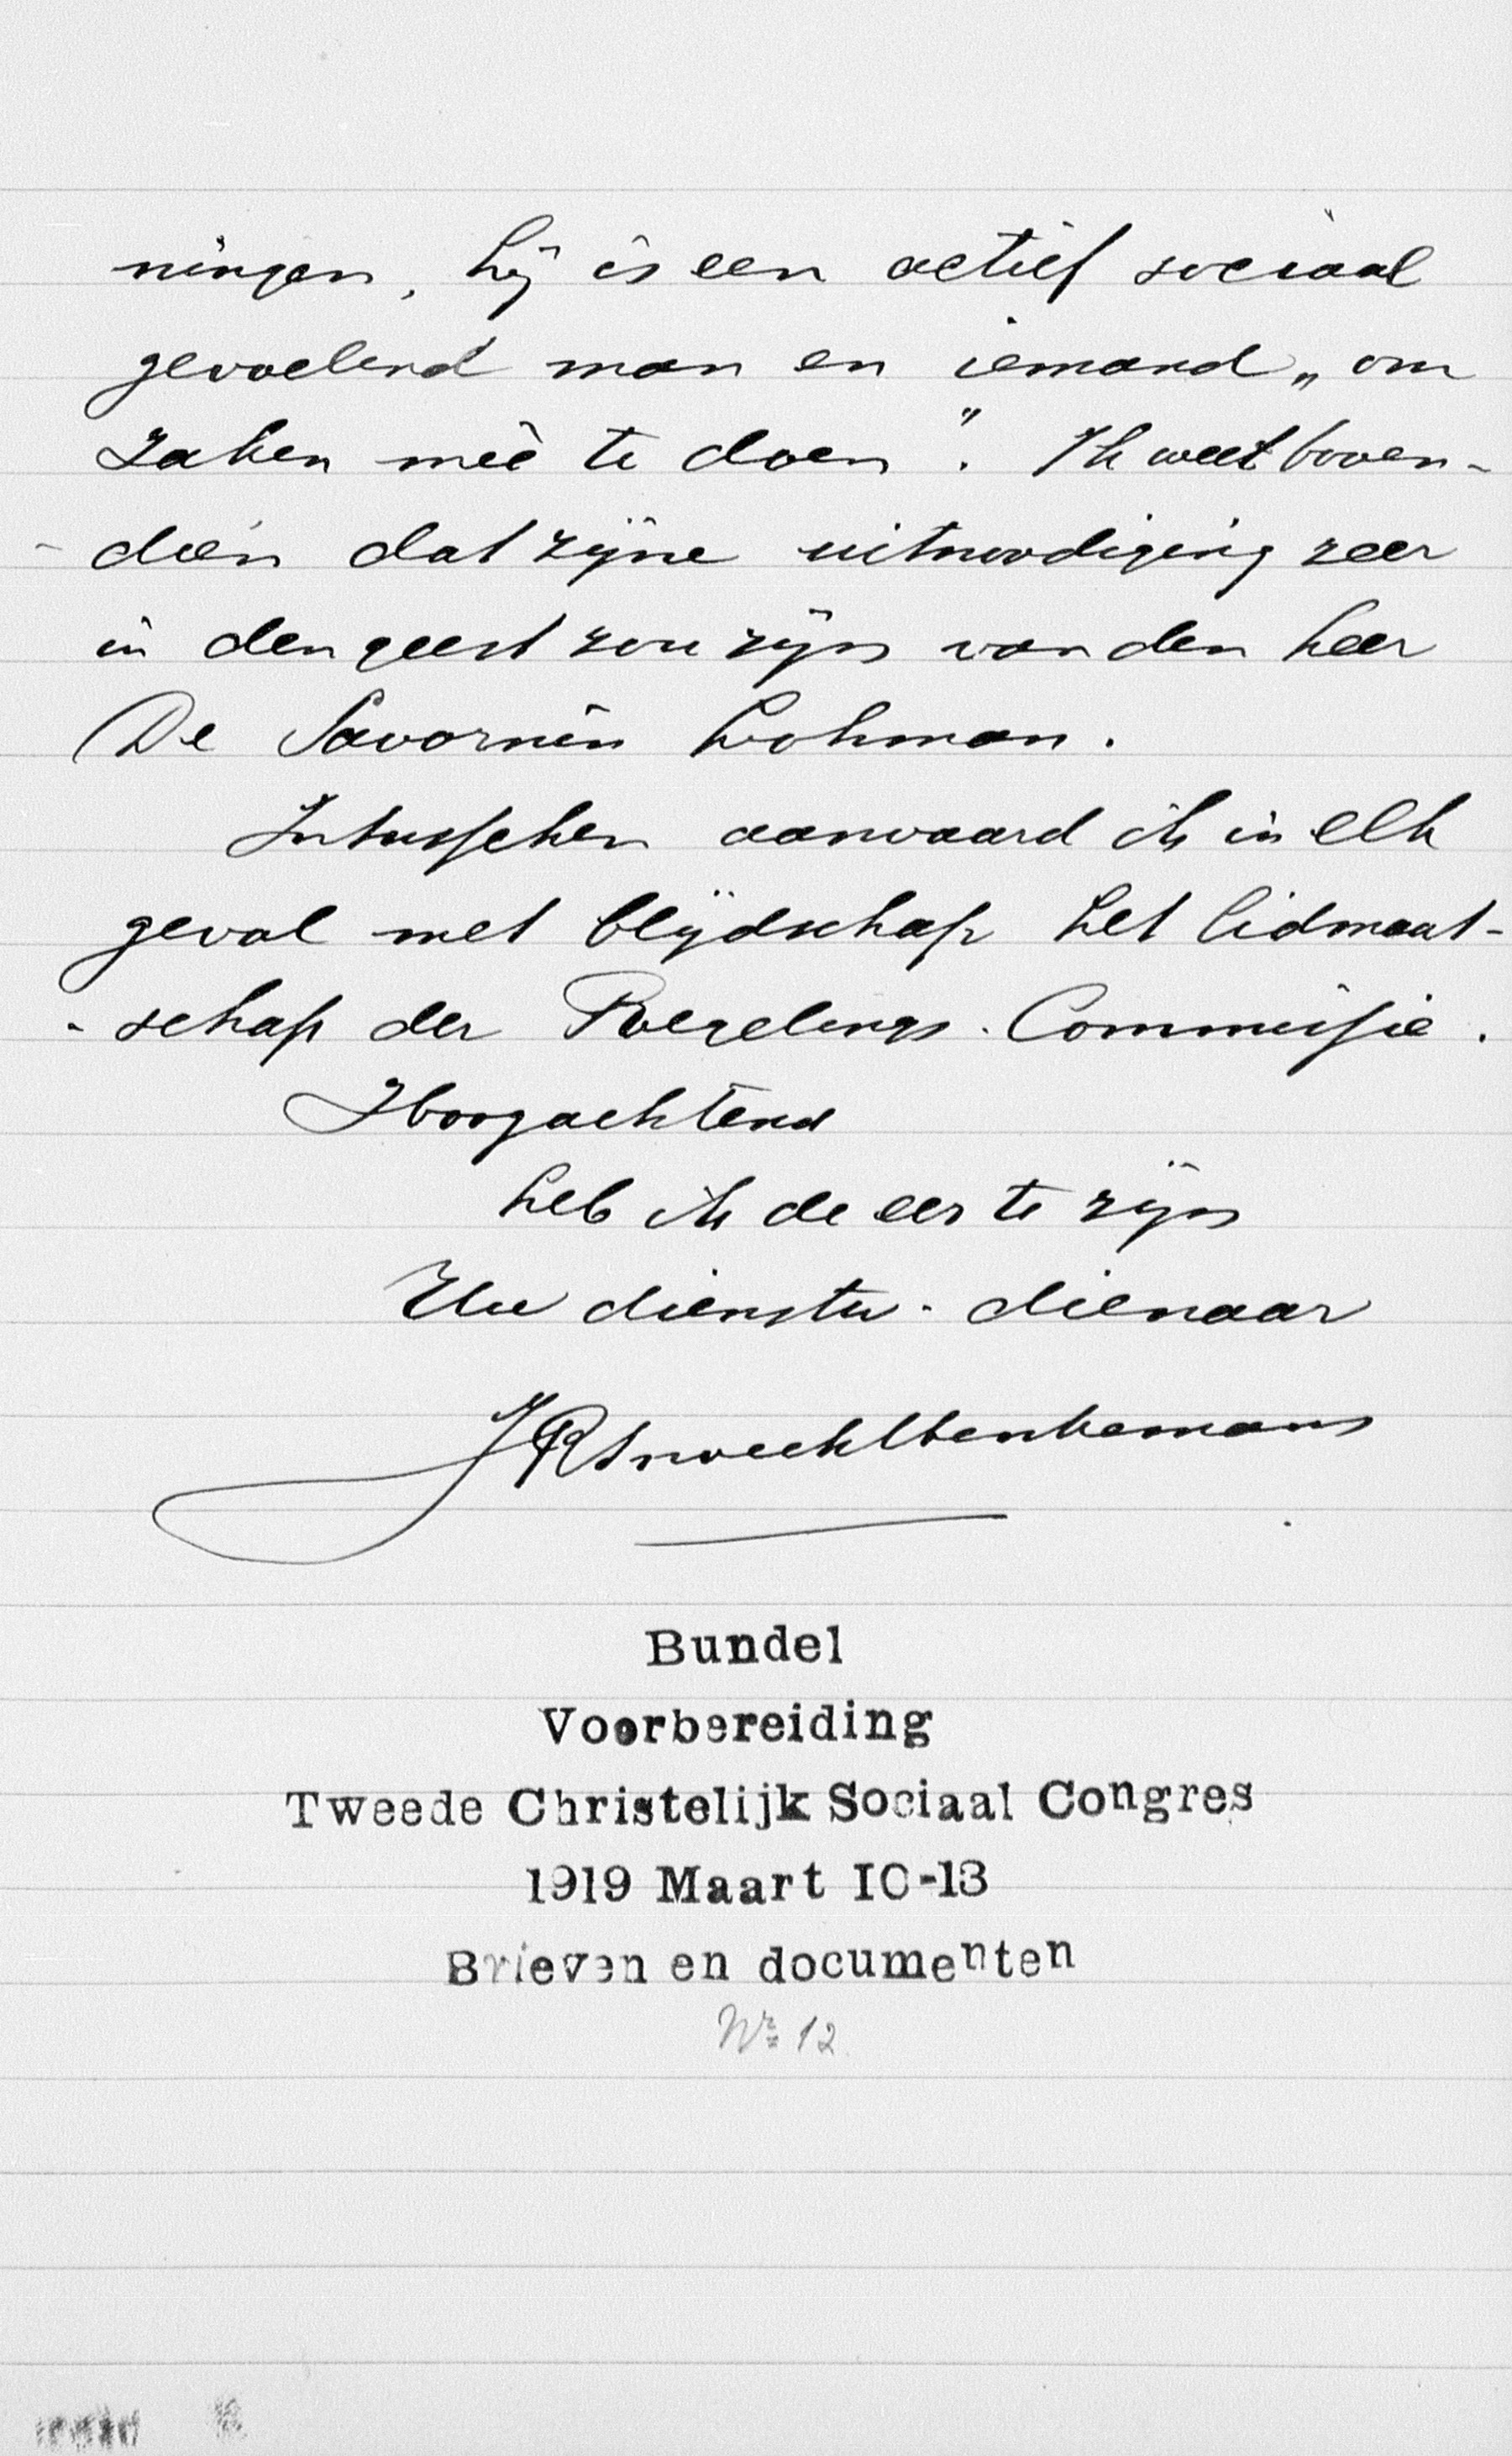 ningen, hij is een actief sociaal
gevoelend man en iemand „om
zaken meê te doen". Ik weet boven-
- dien dat zijne uitnoodiging zeer
in den geest zou zijn van den heer
De Savornin Lohman.
Intusschen aanvaard ik in elk
geval met blijdschap het lidmaat-
- schap der Regelings-Commissie.
Hoogachtend
heb ik de eer te zijn
Uw dienstw. dienaar
JR Snoeck Henkemans
Bundel
Voorbereiding
Tweede Christelijk Sociaal Congres
1919 Maart 10-13
Brieven en documenten
No 12